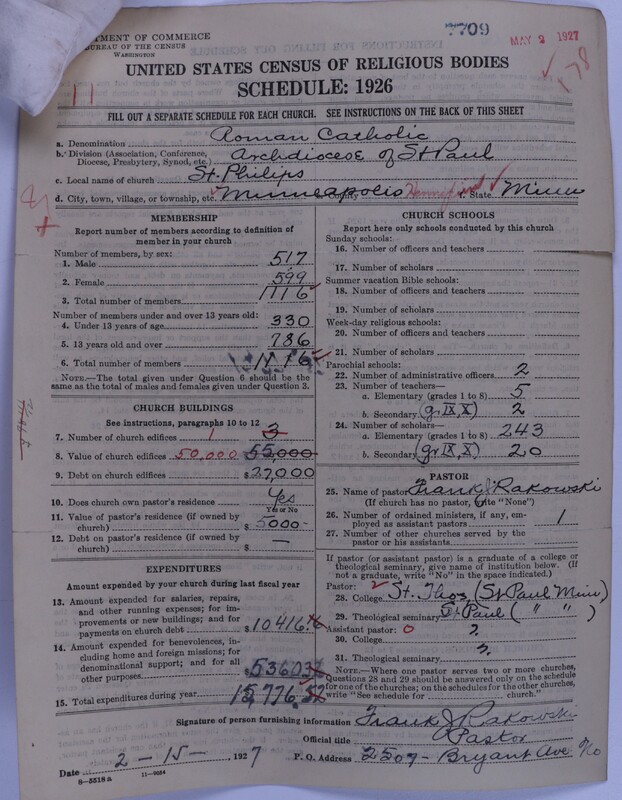 DEPARTMENT OF COMMERCE
BUREAU OF THE CENSUS
WASHINGTON
7709
MAY 2 1927
178
11
UNITED STATES CENSUS OF RELIGIOUS BODIES
SCHEDULE: 1926
FILL OUT A SEPARATE SCHEDULE FOR EACH CHURCH. SEE INSTRUCTIONS ON THE BACK OF THIS SHEET
a. Denomination Roman Catholic
b. Division (Association, Conference, Diocese, Presbytery, Synod, etc.) Archdiocese of St Paul
c. Local name of church St. Philips
d. City, town, village, or township, etc. Minneapolis e. County Hennepin f. State Minn
MEMBERSHIP
Report number of members according to definition of member in your church
Number of members, by sex:
1. Male 517
2. Female 599
3. Total number of members 1116
Number of members under and over 13 years old:
4. Under 13 years of age 330
5. 13 years old and over 786
6. Total number of members 1116
NOTE.—The total given under Question 6 should be the same as the total of males and females given under Question 3.
CHURCH BUILDINGS
See instructions, paragraphs 10 to 12
7. Number of church edifices 1 3
8. Value of church edifices 50,000 $55,000
9. Debt on church edifices $27,000
10. Does church own pastor's residence? Yes
Yes or No
11. Value of pastor's residence (if owned by church) $5000-
12. Debt on pastor's residence (if owned by church) $ —
EXPENDITURES
Amount expended by your church during last fiscal year
13. Amount expended for salaries, repairs, and other running expenses; for improvements or new buildings; and for payments on church debt $10416
14. Amount expended for benevolences, including home and foreign missions; for denominational support; and for all other purposes 5360
15. Total expenditures during year 15,776.52
CHURCH SCHOOLS
Report here only schools conducted by this church
Sunday schools:
16. Number of officers and teachers
17. Number of scholars
Summer vacation Bible schools:
18. Number of officers and teachers
19. Number of scholars
Week-day religious schools:
20. Number of officers and teachers
21. Number of scholars
Parochial schools:
22. Number of administrative officers 2
23. Number of teachers—
a. Elementary (grades 1 to 8) 5
b. Secondary (gr IX, X) 2
24. Number of scholars—
a. Elementary (grades 1 to 8) 243
b. Secondary (gr IX, X) 20
PASTOR
25. Name of pastor Frank J Rakowski
(If church has no pastor, write "None")
26. Number of ordained ministers, if any, employed as assistant pastors 1
27. Number of other churches served by the pastor or his assistants
If pastor (or assistant pastor) is a graduate of a college or theological seminary, give name of institution below. (If not a graduate, write "No" in the space indicated.)
Pastor:
28. College St. Thos (St Paul Minn)
29. Theological seminary St Paul ( " " )
Assistant pastor: 0 ?
30. College
31. Theological seminary ?
NOTE.—Where one pastor serves two or more churches, Questions 28 and 29 should be answered only on the schedule for one of the churches; on the schedules for the other churches, write "See schedule for church."
Signature of person furnishing information Frank J Rakowski
Official title Pastor
Date 2-15- 1927 P. O. Address 2507- Bryant Ave No
8-5518 a 11-9664